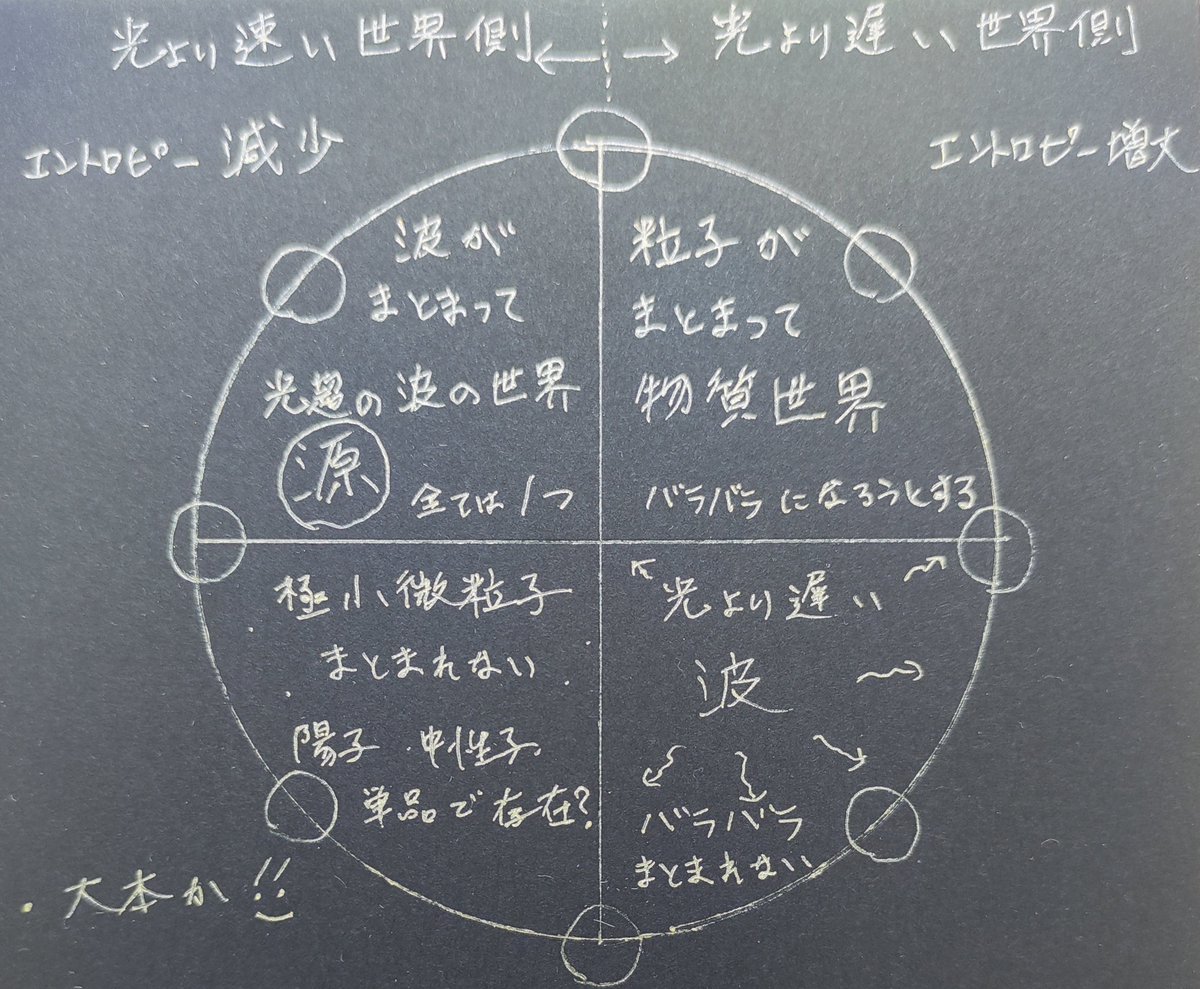 光より速い世界側 ← → 光より遅い世界側
エントロピー減少
エントロピー増大
波が
まとまって
光超の波の世界
源
全ては1つ
粒子が
まとまって
物質世界
バラバラになろうとする
極小微粒子
まとまれない
陽子・中性子
単品で存在?
光より遅い
波
バラバラ
まとまれない
・大本か!!